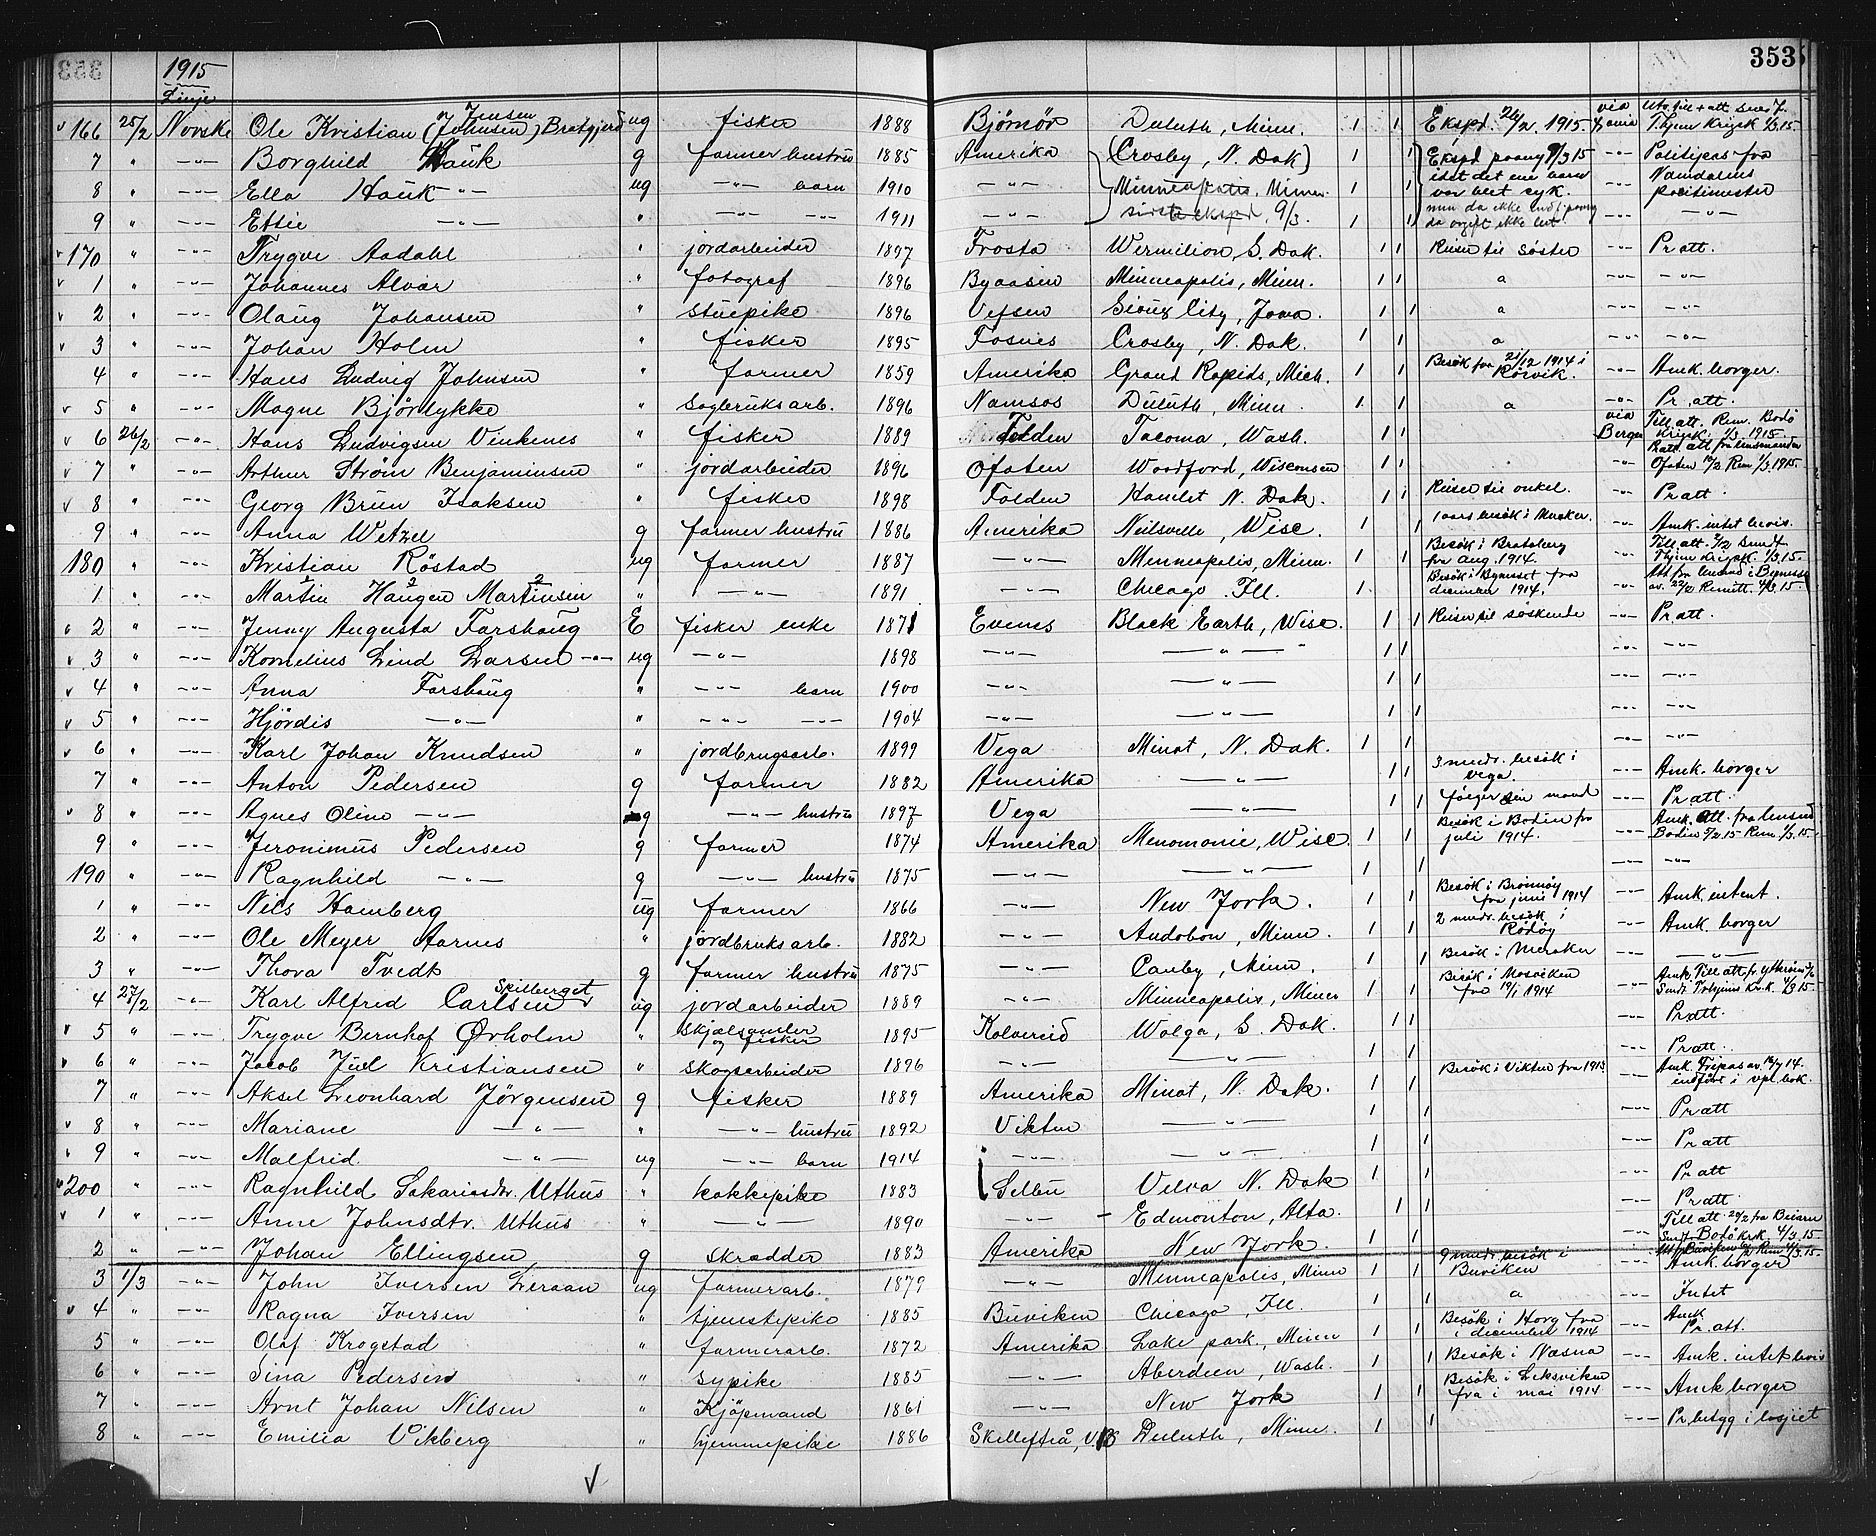 353
1915
Linje
166 25/2 Norske Ole Kristian (Johnsen) Jensen Bratgjerd ug fisker 1888 Bjørnör Duluth, Minn. 1 1 Ekspd. 26/2 1915 via
7 " -"- Borghild Hauk g farmer hustru 1885 Amerika (Crosby, N. Dak) 1 1 Ekspd paany 9/3 15 -"- Politipas fra
8 " -"- Ella Hauk -"- ug -"- barn 1910 -"- Minneapolis, Minn. 1 1 var blet syk. -"- Namdalens politimester
9 " -"- Effie -"- " -"- -"- 1911 -"- sidste ekspd, 9/3. 1 1 -"- -"-
170 " -"- Trygve Aadahl " jordarbeider 1897 Frosta Wermilion, S. Dak. 1 1 Reiser til söster -"- Pr att.
1 " -"- Johannes Alvær " fotograf 1896 Byaasen Minneapolis, Minn. 1 1 a -"- -"-
2 " -"- Olaug Johansen " stuepike 1896 Vefsen Sioux City, Jowa. 1 1 a -"- -"-
3 " -"- Johan Holm " fisker 1895 Fosnes Crosby, N. Dak. 1 1 a -"- -"-
4 " -"- Hans Ludvig Johnsen " farmer 1859 Amerika Grand Rapids, Mich. 1 1 Besök fra 21/12 1914 i Rörvik. -"- Amk. borger.
5 " -"- Magne Bjørlykke " Sagbruksarb. 1896 Namsos Duluth, Minn. 1 1 a -"- Pr. att.
6 26/2 -"- Hans Ludvigsen Vinkenes " fisker 1889 Folden Tacoma, Wash. 1 1 via Bergen Till att. Rem. Bodö Krigsk. 1/3 1915.
7 " -"- Arthur Strøm Benjaminsen " jordarbeider 1896 Ofoten Woodford, Wisconsen 1 1 " Pratt. att fra lensmanden Ofoten 10/2 Rem 1/3 1915.
8 " -"- Georg Brun Isaksen " fisker 1898 Folden Hamlet N. Dak. 1 1 Reiser til onkel. -"- Pr att.
9 " -"- Anna Wetzel g farmer hustru 1886 Amerika Neilsville, Wisc. 1 1 1 aars besök i Meraker. -"- Amk. intet bevis.
180 " -"- Kristian Röstad ug farmer 1887 -"- Minneapolis, Minn. 1 1 Besök i Bratsberg fra aug. 1914. -"- Till att. 2/2 Sendt Thjem Krigsk 1/3 15.
1 " -"- Martin Haugen Martinsen " -"- 1891 -"- Chicago. Ill. 1 Besök i Bynesset fra december 1914. -"- Att fra lensmd i Bynesset av. 22/2 Remitt. 4/3 15.
2 " -"- Jenny Augusta Forshaug E fisker enke 1871 Evenes Black Earth, Wisc. 1 1 Reiser til söskende -"- Pr att.
3 " -"- Kornelius Lind Larsen -"- ug -"- 1898 -"- -"- 1 1 -"- -"-
4 " -"- Anna Forshaug " -"- barn 1900 -"- -"- 1 1 -"- -"-
5 " -"- Hjördis -"- " -"- -"- 1904 -"- -"- 1 1 -"- -"-
6 " -"- Karl Johan Knudsen " jordbrugsarb. 1899 Vega Minot, N. Dak. 1 1 -"- -"-
7 " -"- Anton Pedersen g farmer 1882 Amerika -"- 1 1 3 mndr. besök i Vega. -"- Amk. borger
8 " -"- Agnes Oline -"- g -"- hustru 1897 Vega -"- 1 1 følger sin mand -"- Pr att.
9 " -"- Jeronimus Pedersen g farmer 1874 Amerika Menomonie, Wisc. 1 1 Besök i Bodin fra juli 1914. -"- Amk. Att. fra lensmd Bodin 5/2 15 Rem 1/3 15.
190 " -"- Ragnhild -"- g -"- hustru 1875 -"- -"- 1 1 -"- -"-
1 " -"- Nils Hamberg ug farmer 1866 -"- New York. 1 1 Besök i Brönnöy fra juni 1914 -"- Amk. intet.
2 " -"- Ole Meyer Aarnes " jordbruksarb. 1882 -"- Audobon, Minn. 1 1 2 mndr. besök i Rödöy -"- Amk. borger
3 " -"- Thora Tvedt g farmer hustru 1875 -"- Canby, Minn. 1 1 Besök i Meraker -"- -"-
4 27/2 -"- Karl Alfred Carlsen Skilberget ug jordarbeider 1889 -"- Minneapolis, Minn 1 1 Besök i Mosviken fra 19/1 1914 -"- Amk. Till att. fr. Ytterøen Sendt Trhjems Kr.k. 4/3 15.
5 " -"- Trygve Bernhof Ørholm " skjælsamler og fisker 1895 Kolvereid Wolga, S. Dak. 1 1 -"- Pr att.
6 " -"- Jacob Juel Kristiansen " skogsarbeider 1896 -"- -"- 1 1 -"- Pr att.
7 " -"- Aksel Leonhard Jörgensen g fisker 1889 Amerika Minot, N. Dak. 1 1 Besök i Vikten fra 1913 -"- Amk. Fripas av. 16/7 14. indført i vpl. bok.
8 " -"- Mariane -"- " -"- hustru 1892 Vikten -"- 1 1 -"- Pr att
9 " -"- Malfrid. -"- ug -"- barn 1914 -"- -"- 1 1 -"- Pr att
200 " -"- Ragnhild Sakariasdr. Uthus " kokkepike 1883 Selbu Velva N. Dak 1 1 -"- Pr att
1 " -"- Anne Johnsdtr. Uthus " -"- 1890 -"- Edmonton, Alta. 1 1 -"- Pr att.
2 " -"- Johan Ellingsen g skrædder 1883 Amerika New York. 1 1 -"- Till att. 20/2 fra Beiarn Sendt Bodö Krk 4/3 15.
3 1/3 -"- John Iversen Leraan ug farmerarb. 1879 -"- Minneapolis, Minn 1 1 9 mndr. besök i Buviken -"- Amk. borger
4 " -"- Ragna Iversen " tjenestepike 1885 Buviken Chicago, Ill. 1 1 a -"- Intet
5 " -"- Olaf Krogstad " farmerarb. 1872 Amerika Lake park, Minn 1 1 Besök i Horg fra i december 1914 -"- Amk. Pr. att.
6 " -"- Sina Pedersen " sypike 1885 -"- Aberdeen, Wash. 1 1 Besök i Næsna -"- Amk. intet bevis
7 " -"- Arnt Johan Nilsen " Kjøpmand 1861 -"- New York 1 1 Besök i Leksviken fra i mai 1914 -"- Amk borger
8 " -"- Emilia Vikberg " hjemmepike 1886 Skellefteå, V.B Duluth, Minn. 1 1 -"- Pr betyg i losjiet